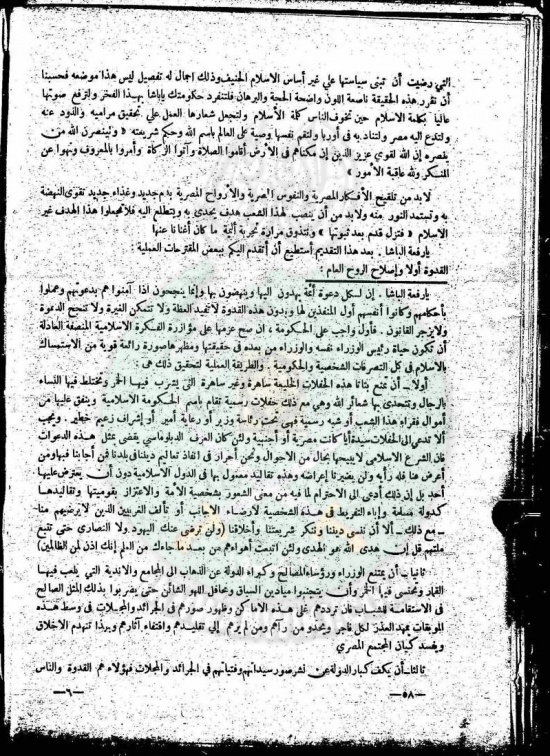 التي رضيت أن تبنى سياستها علي غير أساس الاسلام الحنيف وذلك اجمال له تفصيل ليس هذا موضعه فحسبنا
أن نقرر هذه الحقيقة ناصعة اللون واضحة الحجة والبرهان فلتنفرد حكومتك ياباشا بهذا الفخر ولترفع صوتها
عاليا بكلمة الاسلام حين تخوف الناس كلمة الأسلام ولتجعل شعارها العمل علي تحقيق مراميه والذود عنه
ولتدع اليه مصر ولتناد به فى أوربا ولتقم نفسها وصية على العالم باسم الله وحكم شريعته « ولينصرن الله من
ينصره إن الله لقوي عزيز الذين إن مكناهم فى الأرض أقاموا الصلاة وآتوا الزكاة وأمروا بالمعروف ونهوا عن
المنكر ولله عاقبة الأمور »
لابد من تلقيح الأفكار المصرية والنفوس المصرية والأرواح المصرية بدم جديد وغذاء جديد تقوى النهضة
به وتستمد النور منه ولابد من أن ينصب لهذا الشعب هدف يحدى به ويتطلع اليه فلا تجعلوا هذا الهدف غير
الاسلام « فتزل قدم بعد ثبوتها » ولتذوق مرارة تجربة أليمة ما كان أغنانا عنها
يارفعة الباشا . بعد هذا التقديم أستطيع أن أتقدم اليكم ببعض المقترحات العملية :
القدوة أولا وإصلاح الروح العام :
يارفعة الباشا . إن لسكل دعوة أئمة يهدون اليها وينهضون بها وإنما ينجحون اذا آمنوا هم بدعوتهم وعملوا
بأحكامهم وكانوا أنفسهم أول المنفذين لها وبدون هذه القدوة لا تفيد العظة ولا تتمكن الفيرة ولا تنجح الدعوة
ولا يزجر القانون . فأول واجب علي الحكومة ، ان صح عزمها على مؤازرة الفسكرة الاسلامية المنصفة العادلة
أن تكون حياة رئيس الوزراء نفسه والوزراء من بعده فى حقيقتها ومظهرها صورة رائعة قوية من الاستمساك
بالاسلام فى كل التصرفات الشخصية والحكومية . والطريقة العملية لتحقيق ذلك هى :
أولا .. أن تمنع بتاتا هذه الحفلات الخليعة ساهرة وغير ساهرة التى يشرب فيها الخمر وتختلط فيها النساء
بالرجال وتتحدى بها شعائر الله وهى مع ذلك حفلات رسمية تقام باسم الحكومة الاسلامية وينفق عليها من
أموال فقراء هذا الشعب أو شبه رسمية فهى تحت رئاسة وزير أو رعاية أمير أو إشراف زعيم خطير . ويجب
ألا تدعى الى الحفلات سيدة أيا كانت مصرية أو أجنبية ولئن كان العرف الدبلوماسي يقضى بمثل هذه الدعوات
فان الشرع الاسلامي لا يبيحها بحال من الاحوال ونحن أحرار فى انفاذ تعاليم ديننا فى بلدنا فمن أجابنا فبها ومن
أعرض عنا فله رأيه ولن يضيرنا إعراضه وهذه تقاليد معمول بها فى الدول الاسلامية دون أن يعترض عليها
أحد بل إن ذلك أدعى الى الاحترام لما فيه من معنى الشعور بشخصية الأمة والاعتزاز بقوميتها وتقاليدها
كدولة مسلمة وإباء التفريط فى هذه الشخصية لارضاء الاجانب أو تألف الغربيين الذين لا يرضيهم منا
ـ مع ذلك ـ ألا أن ننسى ديننا وننكر شريعتنا وأخلاقنا ( ولن ترضى عنك اليهود ولا النصارى حتى تتبع
ملتهم قل إن هدى الله هو الهدى ولئن اتبعت أهواءهم من بعد ما جاءك من العلم إنك اذن لمن الظالمين )
ثانيا ـ أن يمتنع الوزراء ورؤساء المصالح وكبراء الدولة عن الذهاب الى المجامع والاندية التي يلعب فيها
القمار وتحتسى فيها الخمر وأن يتجنبوا ميادين السباق ومحافل اللهو الشائن حتى يضربوا بذلك المثل الصالح
فى الاستقامة للشباب فان ترددهم على هذه الاماكن وظهور صورهم فى الجرائد والمجلات فى وسط هذه
الموبقات يمهد العذر لكل فاجر ويحدو من رآهم ومن لم يرهم إلى تقليدهم واقتفاء آثارهم وبهذا تنهدم الاخلاق
ويفسد كيان المجتمع المصري
ثالثا ـ أن يكف كبار الدولة عن نشر صور سيداتهم وفتياتهم فى الجرائد والمجلات فهؤلاء هم القدوة والناس
—٥٨—
—٦—